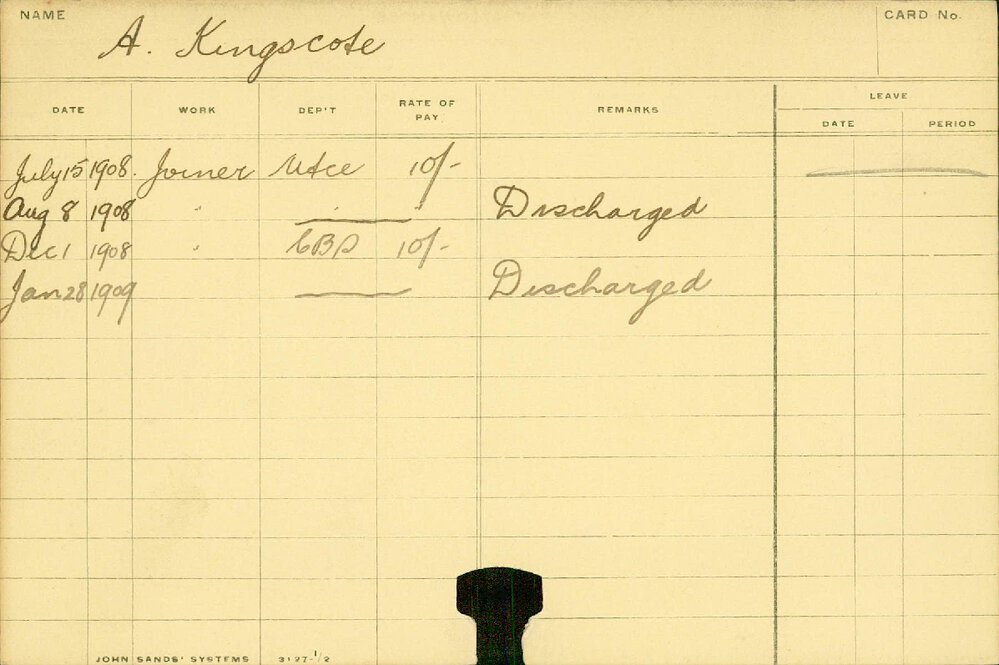 NAME A. Kingscote CARD No.
DATE WORK DEP'T RATE OF PAY REMARKS LEAVE
DATE PERIOD
July 15 1908. Joiner Mtce 10/-
Aug 8 1908 " " Discharged
Dec 1 1908 " 10/-
Jan 28 1909 Discharged
JOHN SANDS' SYSTEMS 3127-1/2